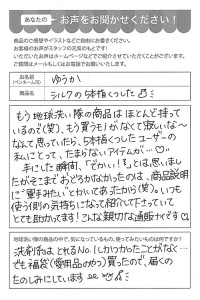 あなたの お声をお聞かせください!
商品のご感想やイラストなどご自由にお書きください。
お客様のお声がスタッフの元気のもとです!
いただいたお声はホームページなどでご紹介させていただくことがございます。
ご質問はメールもしくはお電話でお願いいたします。
お名前 (ペンネーム可) ゆうか
商品名 シルクの5本指くつした
もう地球洗い隊の商品はほとんど持って
いるので(笑)、もう買うモノがなくて寂しいな〜
なんて思っていたら、5本指くつしたユーザーの
私にとって、たまらないアイテムが…♡
手にした瞬間、「でかい!!」とは思いまし
たがそこまでおどろかなかったのは、商品説明
に"驚きますよ"とかいてあったから(笑)。いつも
使う側の気持ちになって紹介して下さっていて
とても助かってます!こんな親切な通販ナイです
地球洗い隊の商品の中で、気になっているもの、使ってみたいものは何ですか?
洗剤系は、とれるNo.1しかりつかったことがなく…
でも福袋(愛用品のやつ)買ったので、届くの
たのしみにしています